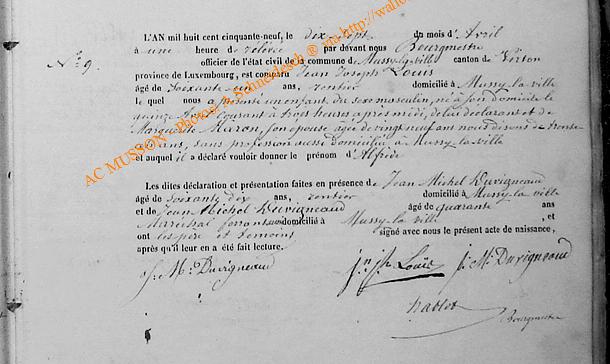 L'AN mil huit cent cinquante-neuf, le dix sept du mois d'Avril
à une heure de relevée par devant nous Bourgmestre
Nº 9.
officier de l'état civil de la commune de Mussy-la-ville canton de Virton
province de Luxembourg, est comparu Jean Joseph Louis
âgé de soixante un ans, rentier domicilié à Mussy-la-ville
le quel nous a présenté un enfant du sexe masculin, né à son domicile le
quinze Avril courant à trois heures après midi, de lui déclarant et de
Marguerite son épouse âgé de vingt neuf ans nous disons de trente
ans, sans profession aussi domicilié à Mussy-la-ville
et auquel il a déclaré vouloir donner le prénom d'Alfred
Les dites déclaration et présentation faites en présence de Jean Michel Duvigneaud
âgé de soixante dix ans, rentier domicilié à Mussy-la-ville
et de Jean Michel Duvigneaud âgé de quarante ans
Maréchal ferrant domicilié à Mussy-la-ville , et
ont les père et témoins signé avec nous le présent acte de naissance,
après qu'il leur en a été fait lecture.
J. M. Duvigneaud
Jn. Jh. Louis
J. M. Duvigneaud
Bourgmestre
AC MUSSON Photos: A. Schneidesch ® http://wallo